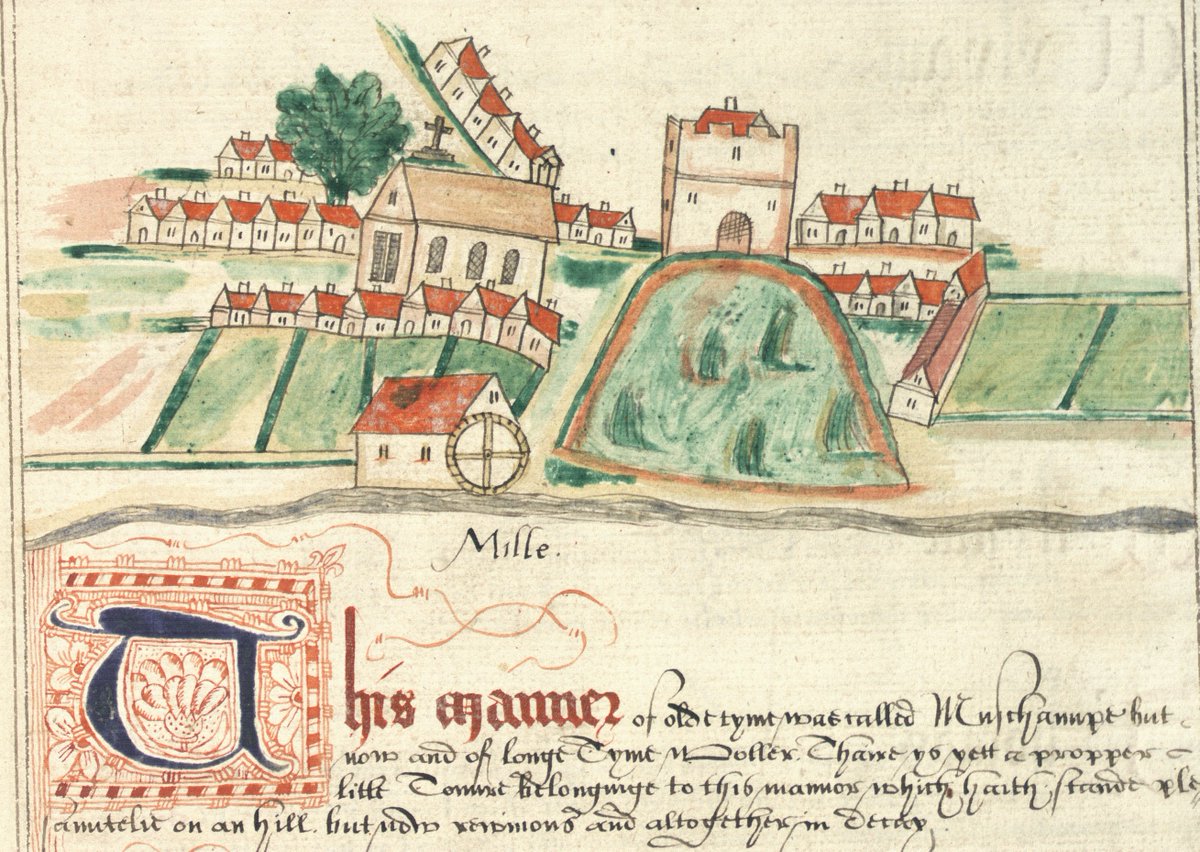 Mille.
This Manner of olde tyme was called Muschampe but
now and of longe Tyme Woller. Thaire ys yett a propper
litle Towre belonginge to this mannor which haith stande ple
asantelie on an hill. but now rewinous and altogether in decay